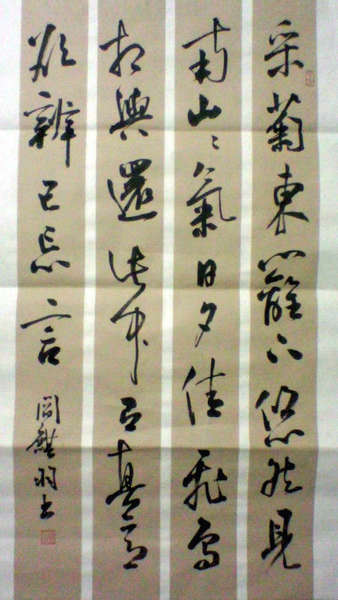 采菊東籬下悠然見
南山々氣日夕佳飛鳥
相與還此中有真意
欲辨已忘言
羽書